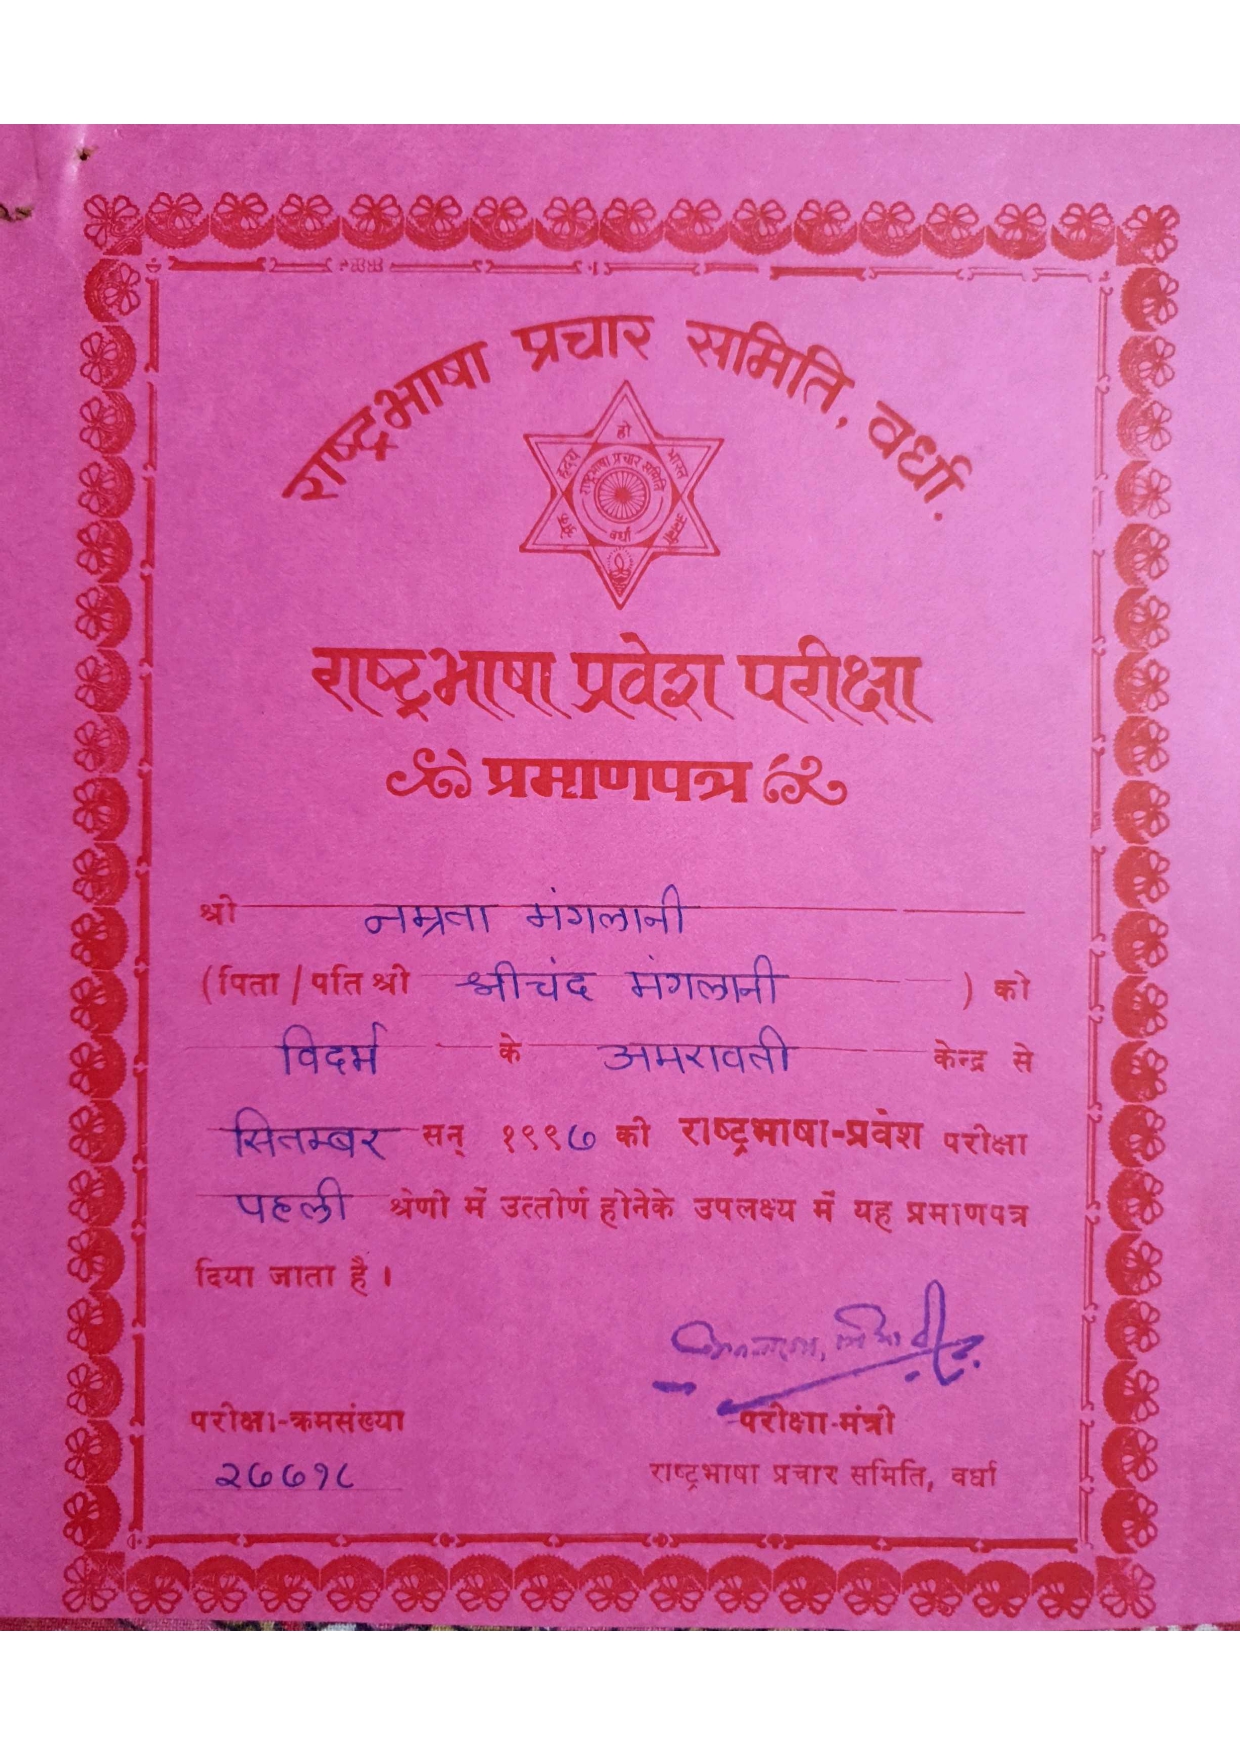 राष्ट्रभाषा प्रचार समिति, वर्धा.
हो
हृदय
भारत
जननी
राष्ट्रभाषा प्रचार समिति
वर्धा
राष्ट्रभाषा प्रवेश परीक्षा
प्रमाणपत्र
श्री नम्रता मंगलानी
(पिता/पति श्री श्रीचंद मंगलानी ) को
विदर्भ के अमरावती केन्द्र से
सितम्बर सन् १९९७ की राष्ट्रभाषा-प्रवेश परीक्षा
पहली श्रेणी में उत्तीर्ण होनेके उपलक्ष्य में यह प्रमाणपत्र
दिया जाता है ।
परीक्षा-क्रमसंख्या
परीक्षा-मंत्री
२७७१८
राष्ट्रभाषा प्रचार समिति, वर्धा